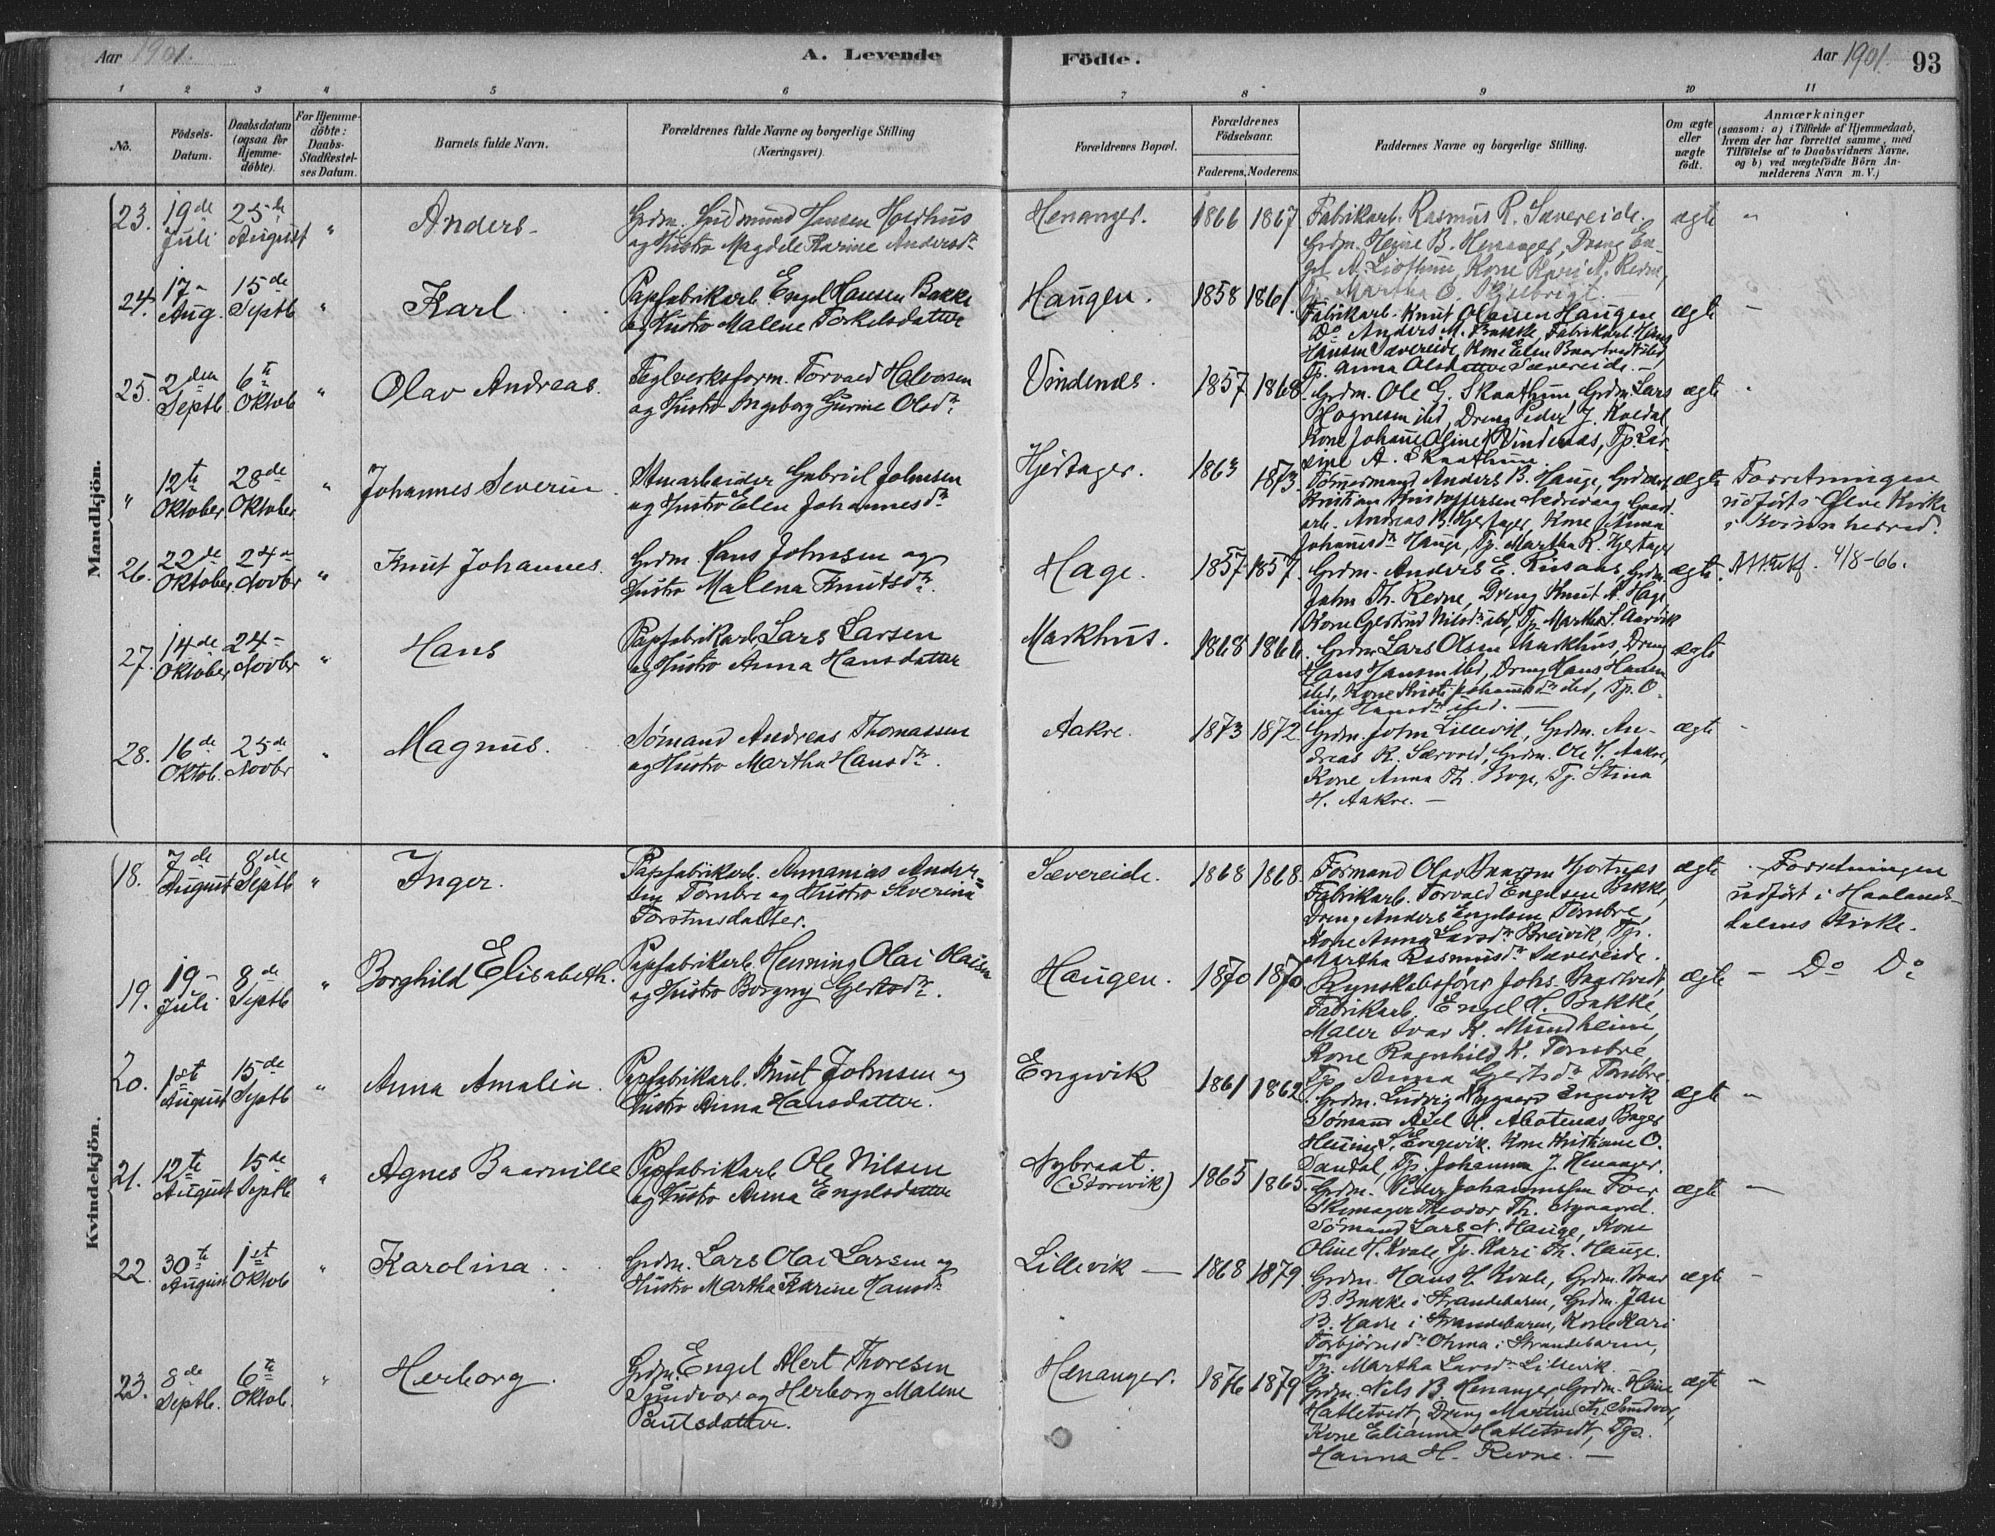 Aar 1901. A. Levende Födte. Aar 1901. 93
1 2 3 4 5 6 7 8 9 10 11
No. Födsels-Datum. Daabsdatum (ogsaa for Hjemme-döbte). For Hjemme-döbte: Daabs-Stadfæstel-ses Datum. Barnets fulde Navn. Forældrenes fulde Navne og borgerlige Stilling (Næringsvei). Forældrenes Bopæl. Forældrenes Födselsaar. Faderens. Moderens. Faddernes Navne og börgerlige Stilling. Om ægte eller nægte födt. Anmærkninger (saasom: a) i Tilfælde af Hjemmedaab, hvem der har forrettet samme, med Tilföielse af to Daabsvidners Navne, og b) ved nægtefödte Börn An-melderens Navn m. V.)
Mandkjön.
23. 19de Juli 25de August " Anders Grdm. Gudmund Hansen Holdhus
og Hustro Magdele Karine Andersdr
Henanger. 1866 1867 Fabrikarb. Rasmus R. Sævereide.
Grdm. Heine B. Henanger, Dreng En-
gel A. Liothun, Kone Kari N. Revne,
Tp. Martha O.
ægte "
24. 17 Aug. 15de Septb " Karl. Papfabrikarb. Engel Hansen Bakke
og Hustro Malene Torkelsdatter
Haugen. 1858 1861 Fabrikarb. Knut Olaisen Haugen
Do Anders M. Bakke, Fabrikarb. Hans
Hansen Sævereide, Kone Elen
Tp. Anna Olsdatter Sævereide. —
ægte —
25. 2den Septb. 6te Oktob. " Olav Andreas. Teglverksform. Torvald Halvorsen
og Hustro Ingeborg Gurine Olsdr.
Vindenæs. 1857 1868 Grdm. Ole G. Skaathun Grdm. Lars
Hognesen ibd, Dreng Peder J. Kvedal
Kone Johanne Oline Vindenæs, Tp. Lar-
sine A. Skaathun.
ægte "
" 12te Oktober 28de Oktober " Johannes Severin. Stenarbeider Gabriel Johnsen
og Hustro Elen Johannesdr
Hjertager. 1863 1873 Tømmermand Anders B. Hauge, Grdm.
Kristian Kristoffersen Nedrevaag Gaard-
arb. Andreas B. Hjertager, Kone Anna
Johannesdr Hauge, Tp. Martha R. Hjertager
ægte Forretningen
udført i Ølve Kirke
i Kvinnherred.
26. 22de Oktober 24 Novbr " Knut Johannes. Grdm. Hans Johnsen og
Hustro Malena Knutsdr.
Hage. 1857 1857 Grdm. Anders E. Husaas, Grdm.
John Th. Revne, Dreng Knut A. Hage
Kone Gjertrud Nilsdr ibd, Tp. Martha S. Aarvik
ægte. Attest 4/8-66.
27. 14de Oktober 24 Novbr " Hans Papfabrikarb. Lars Larsen
og Hustro Anna Hansdatter
Markhus. 1868 1866 Grdm. Lars Olsen Markhus, Dreng
Hans Hansen ibd, Dreng Hans Hansen
ibd, Kone Kristi Johannesdr ibd, Tp. O-
line Hansdr ibd. —
ægte
28. 16de Oktob. 25de Novbr " Magnus. Sømand Andreas Thomassen
og Hustro Martha Hansdr.
Aakre. 1873 1872 Grdm. John Lillevik, Grdm. An-
dreas R. Særvold, Grdm. Ole H. Aakre,
Kone Anna Th. Boge, Tp. Stina
H. Aakre. —
ægte —
Kvindekjön.
18. 7de August 8de Septb " Inger. Papfabrikarb. Annanias Ander-
sen Tombre og Hustro Severina
Torstensdatter.
Sævereide. 1868 1868 Formand Olav Hjortnæs
Fabrikarb. Torvald Engelsen Bakke,
Dreng Anders Engelsen Tombre,
Kone Anna Larsdr Breivik, Tp.
Martha Rasmusdr Sævereide.
ægte Forretningen
udført i Haalands-
dalens Kirke.
19. 19 Juli 8de Septb " Borghild Elisabeth. Papfabrikarb. Henning Olai Olaisen
og Hustro Borgny Gjertsdr.
Haugen. 1870 1870 Regnskabsfører Johs.
Fabrikarb. Engel H. Bakke,
Maler Ivar K. Mundheim,
Kone Ragnhild K. Tombre,
Tp. Anna Gjertsdr Tombre.
ægte — Do Do
20. 1ste August 15de Septb " Anna Amalia. Papfabrikarb. Knut Johnsen og
Hustro Anna Hansdatter.
Engevik 1861 1862 Grdm. Ludvig Nygaard Engevik
Sømand Axel H. Alvotenæs, Bager
Henning S. Engevik. Kone Kristiane O.
Sandal, Tp. Johanna J. Henanger.
ægte "
21. 12te August 15de Septb " Agnes Baarnille Papfabrikarb. Ole Nilsen
og Hustro Anna Engelsdatter
Nybraat.
(Storevik) 1865 1865 Grdm. Peder Johannessen Tveit
Skomager Theodor Th. Nygaard.
Sømand Lars N. Hauge, Kone
Oline H. Kvale, Tp. Kari Th. Hauge.
ægte —
22. 30te August 1ste Oktob " Karolina Grdm. Lars Olai Larsen og
Hustro Martha Karine Hansdr
Lillevik — 1868 1879 Grdm. Hans H. Kvale, Grdm. Ivar
B. Bakke i Strandebarm, Grdm. Jan
B. Have i Strandebarm, Kone Kari
Torbjørnsdr Ohma i Strandebarm,
Tp. Martha Larsdr Lillevik.
ægte —
23. 8de Septb. 6te Oktob. " Herborg. Grdm. Engel Alert Thoresen
Sundvor og Herborg Malene
Paulsdatter.
Henanger. 1876 1879 Grdm. Nils B. Henanger, Grdm. Heine
Hatletvedt, Dreng Martin Th. Sundvor,
Kone Elianna Hatletvedt, Tp.
Hanna H. Revne. —
ægte —